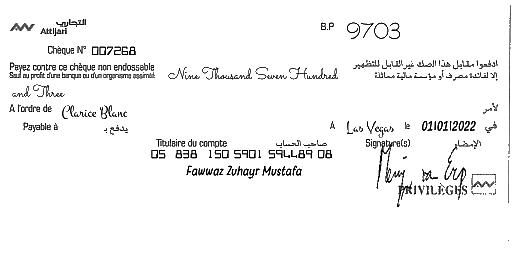 التجاري
Attijari
B.P 9703
Chèque N° 007268
Payez contre ce chèque non endossable
Sauf au profit d'une banque ou d'un organisme assimilé
Nine Thousand Seven Hundred
ادفعوا مقابل هذا الصك غير القابل للتظهير
إلا لفائدة مصرف أو مؤسسة مالية مماثلة
and Three
A l'ordre de Clarice Blanc لأمر
Payable à يدفع بـ
A Las Vegas le 01/01/2022 في
Titulaire du compte صاحب الحساب
Signature(s) الإمضاء
05 838 150 5901 594489 08
Fawwaz Zuhayr Mustafa
PRIVILÈGES